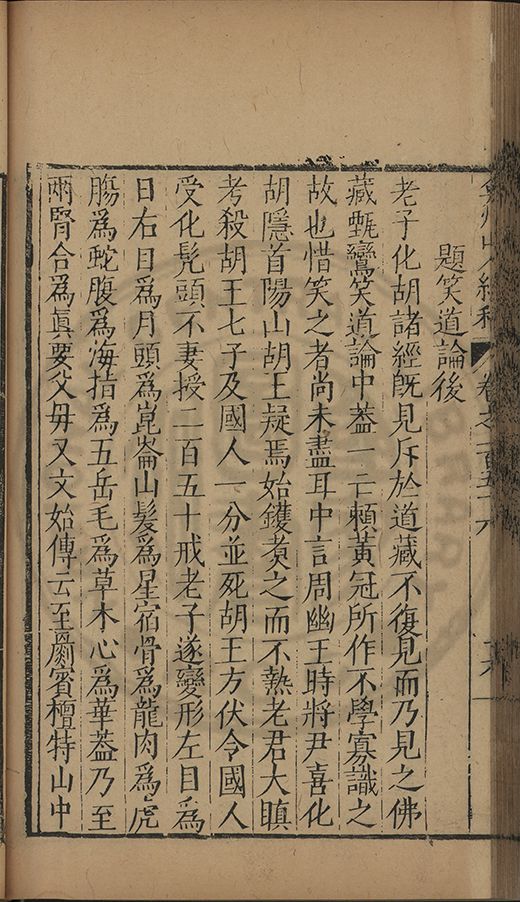 弇州山人續稿 卷之一百五十六
題笑道論後
老子化胡諸經既見斥於道藏不復見而乃見之佛
藏甄鸞笑道論中葢一亡賴黃冠所作不學寡識之
故也惜笑之者尚未盡耳中言周幽王時將尹喜化
胡隱首陽山胡王疑焉始鑊煑之而不熟老君大瞋
考殺胡王七子及國人一分並死胡王方伏令國人
受化髡頭不妻授二百五十戒老子遂變形左目爲
日右目爲月頭爲崑崙山髮爲星宿骨爲龍肉爲虎
腸爲蛇腹爲海指爲五岳毛爲草木心爲華葢乃至
兩腎合爲眞要父母又文始傳云至罽賓檀特山中